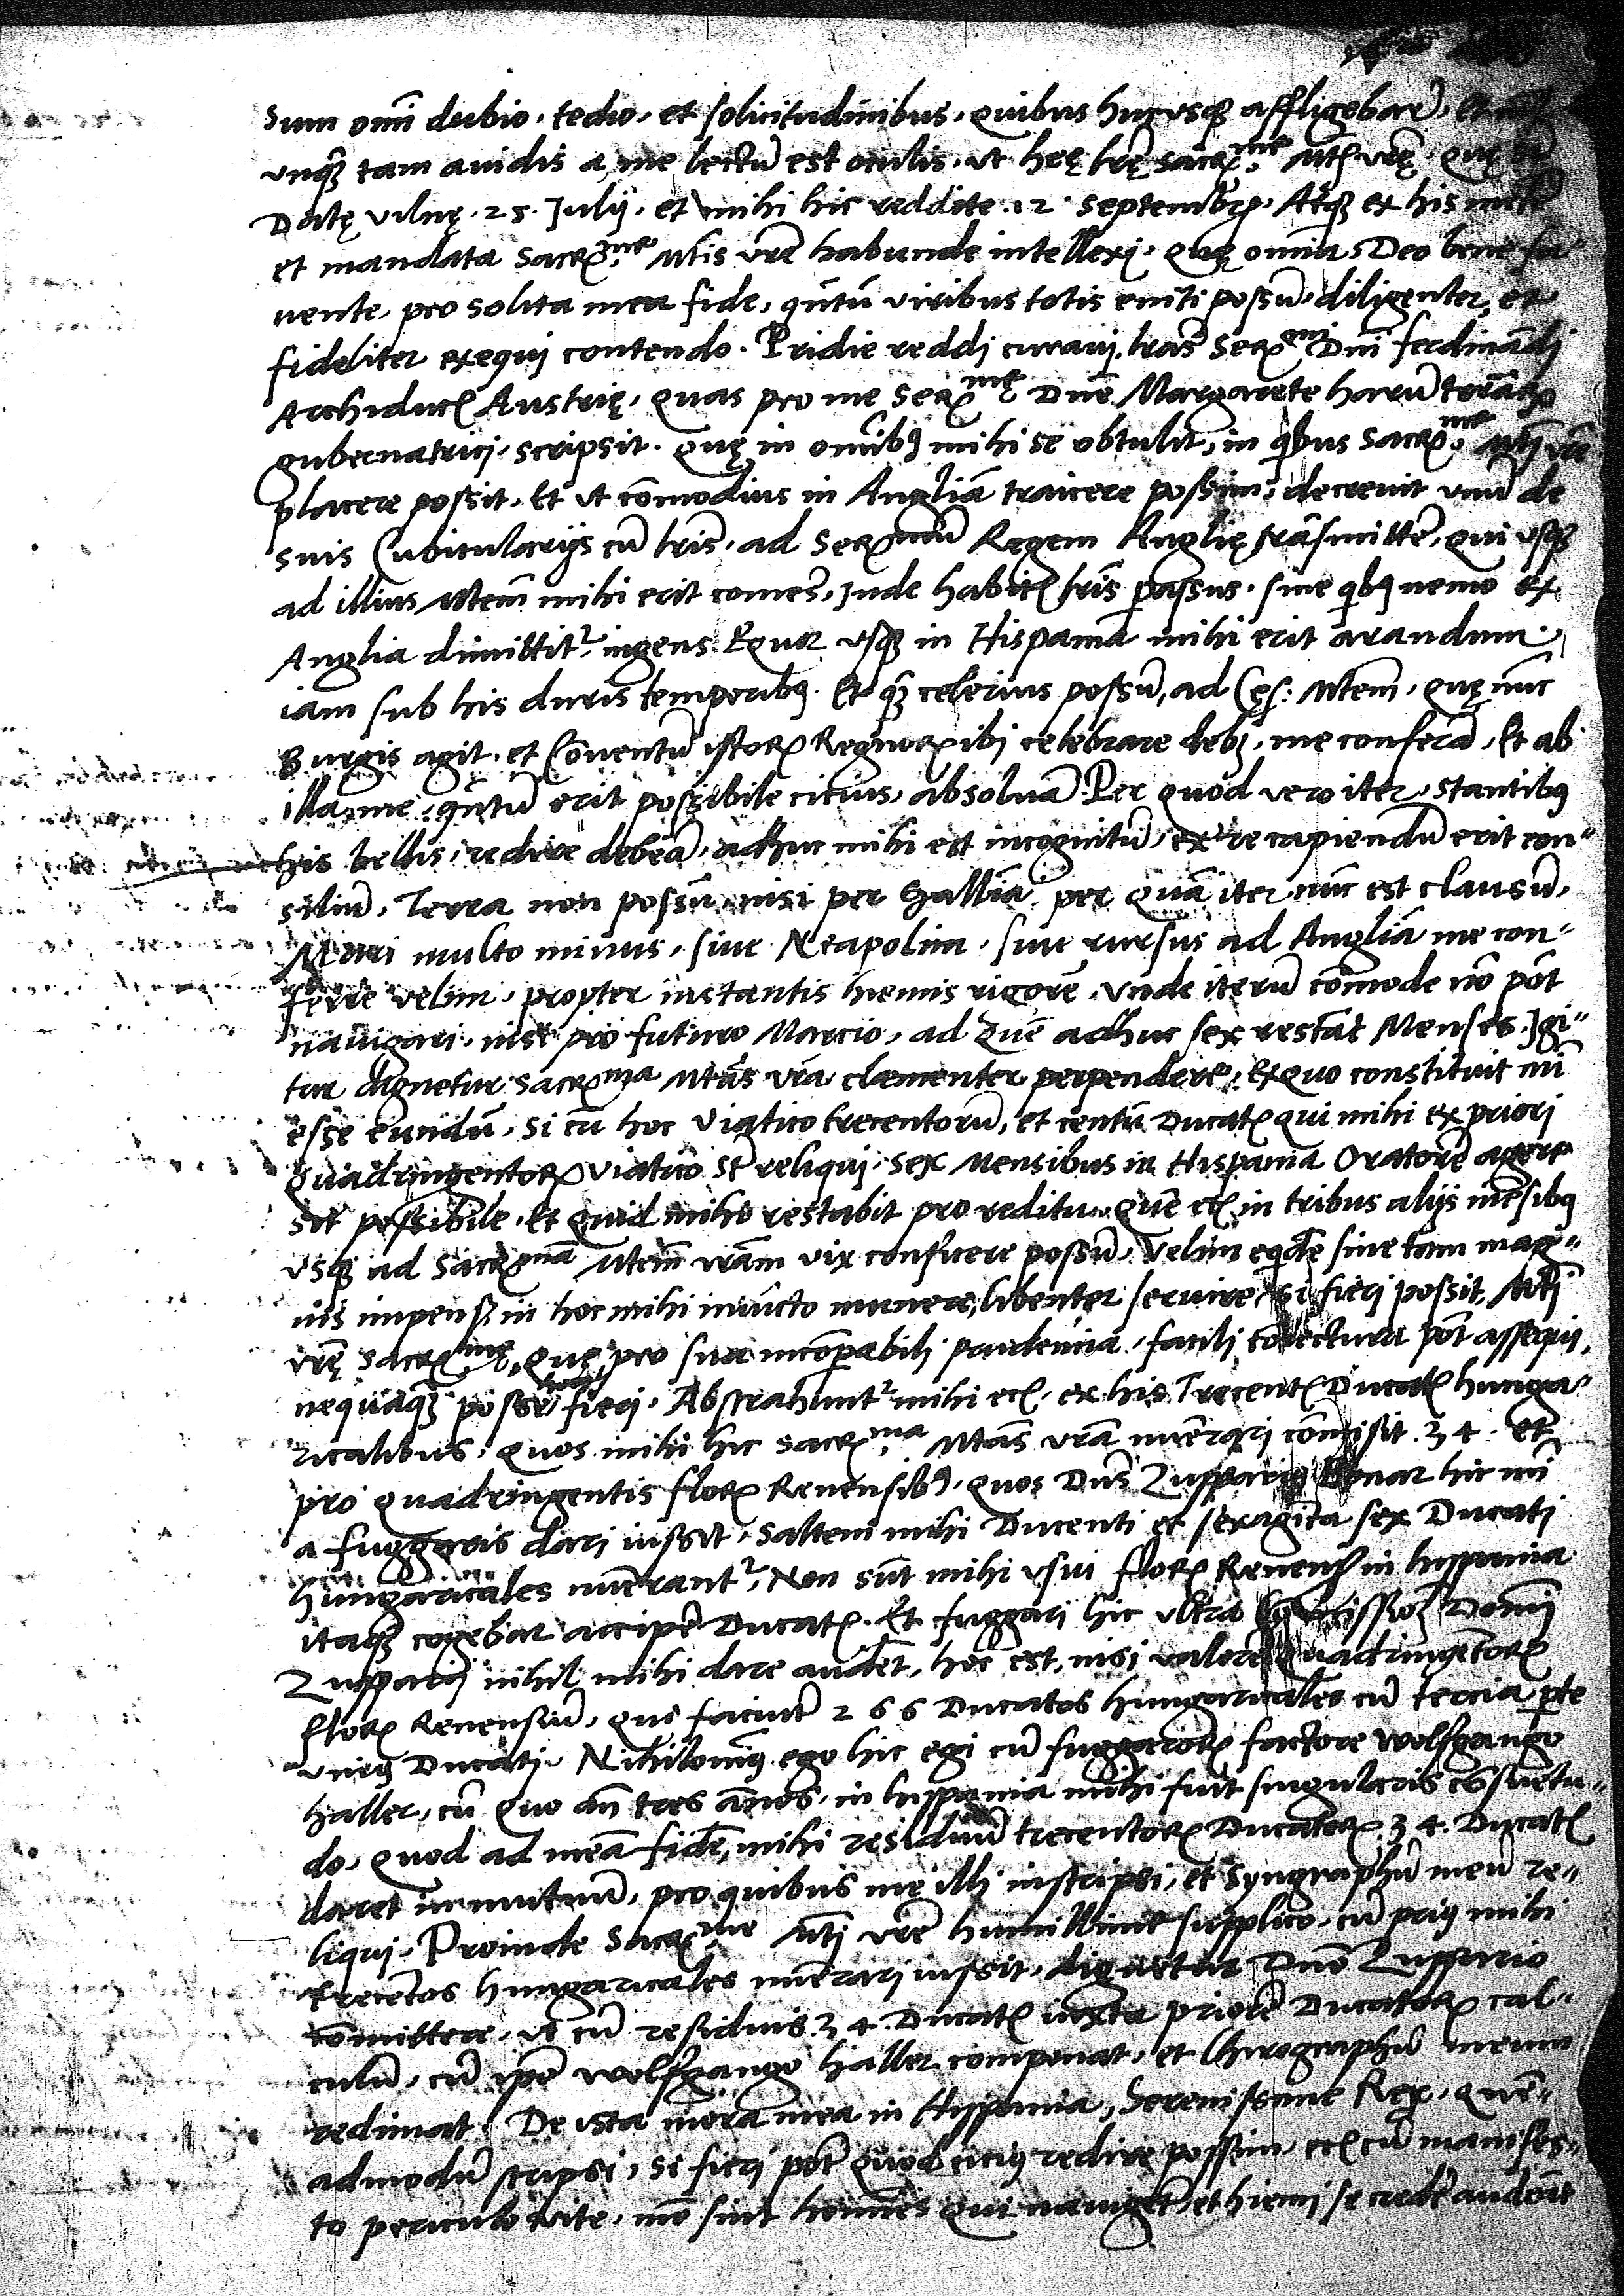 sum omi dubio, tedio, et solicitudinibus, quibus hucusq affligebar, Et
unq tam avidis a me lectu est oculis, ut hec lre Sacr me Mtis vre, que st
Date vilne 25 Julij, et mihi hic reddite 12 Septembrs, Atq ex his
et mandata Sacr me Mtis vre habunde intellexi, que omnia, Deo bene fa
vente, pro solita mea fide, qntu viribus totis eniti possu, diligenter et
fideliter exequi contendo. Pridie reddi curavi lras Ser mi Dni ferdinadi
Archiduc Austrie, quas pro me Ser me Dne Margarete haru terraru
gubernatrici, scripsit, que in omibus mihi se obtulit, in qbus Sacr me Mti vre
placere possit, Et ut comodius in Anglia traicere possim, decrevit unu de
suis Cubicularijs cu lris, ad Ser mu Regem Anglie trasmitte, qui usq
ad illius Mtem mihi erit comes, Inde habitis lris passus, sine qbus nemo ex
Anglia dimittit, ingens equor usq in Hispania mihi erit arandum,
iam sub his duris temporibus. Et q celerius possu, ad Ces: Mtem, que nuc
Burgis agit, et Conventu istor Regnor ibi celebrare debet, me confera, Et ab
illa me, qntu erit possibile citius, absolva. Per quod vero iter, stantibus
his bellis, redire debea, adhuc mihi est incognitu, ex re capiendu erit con=
siliu, Terra non possu, nisi per Gallia, per qua iter nuc est clausu,
Mari multo minus, sive Neapolim, sive rursus ad Anglia me con=
ferre velim, propter instantis hiemis rigore, unde iteru comode no pot
navigari, nisi pro futuro Marcio, ad que adhuc sex restat Menses. Igi=
tur dignetur Sacr ma Mtas vra clementer perpendere, ex quo constituit mi
esse eundu, si cu hoc viatico trecentoru, et centu Ducat qui mihi ex priori
quadringentor viatico st reliqui, sex Mensibus in Hispania Oratore agere
sit possibile, Et quid mihi restabit pro reditu, que ecs in tribus alijs mesibus
usq ad Sacr ma Mtem vram vix conficere possu, Velim eqde sine tam mag=
nis impens, in hoc mihi iniucto munere, libenter servire, si fieri possit, Mti
vre Sacr me, que pro sua incoparabili prudencia, facili coiectura pot assequi,
nequaq posse hoc fieri. Abstrahunt mihi ecs, ex his Trecent Ducat hunga=
ricalibus, quos mihi hic Sacr ma Mtas vra nuerari comisit 34. et
pro quadringentis flor Renensibus, quos Dns Zupparius Bonar hic mi
a fuggaris dari iussit, Saltem mihi Ducenti et sexaginta sex Ducati
hungaricales nuerant, Non sut mihi usui flor Renens in hispania
itaq cogebar accipe Ducat. Et fuggari hic ultra comissio Domi
Zupparij nihil mihi dare audet, hoc est, nisi valore quadringetor
flor Renensiu, qui faciut 266 Ducatos hungaricales cu tercia pte
unius Ducati. Nihilominus ego hic egi cu fuggaror factore Wolfgango
haller, cu quo an tres annos, in hispania mihi fuit singularis cosuetu=
do, quod ad mea fide, mihi residuu trecentor Ducator 34. Ducat
daret in mutuu, pro quibus me illi inscripsi, et Syngraphu meu re=
liqui, Proinde Sacr me Mti vre humillime supplico, cu prius mihi
trecetos hungaricales nuerari iussit, dignetur Dno Zuppario
comittere, ut cu residuis 34. Ducat iuxta priore Ducator cal=
culu, cu ipso Wolfgango haller componat, et Chirographu meum
redimat. De ista mora mea in Hispania, Serenissime Rex, que=
admodu scripsi, si fieri pot quod citius redire possim, ecs cu manifes=
to periculo vite, mo sint homies qui naviget, et hiemi se crede audeat